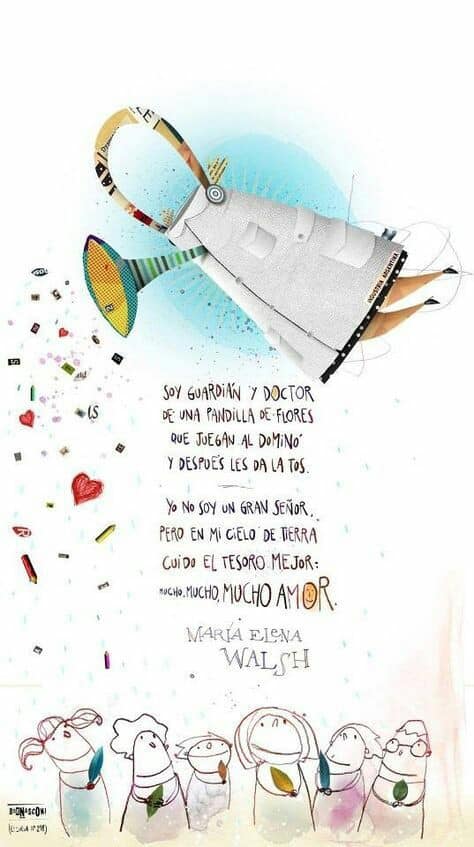 INDUSTRIA ARGENTINA
SOY GUARDIÁN Y DOCTOR
DE UNA PANDILLA DE FLORES
QUE JUEGAN AL DOMINÓ
Y DESPUÉS LES DA LA TOS.
YO NO SOY UN GRAN SEÑOR,
PERO EN MI CIELO DE TIERRA
CUIDO EL TESORO MEJOR:
MUCHO, MUCHO, MUCHO AMOR.
MARÍA ELENA
WALSH